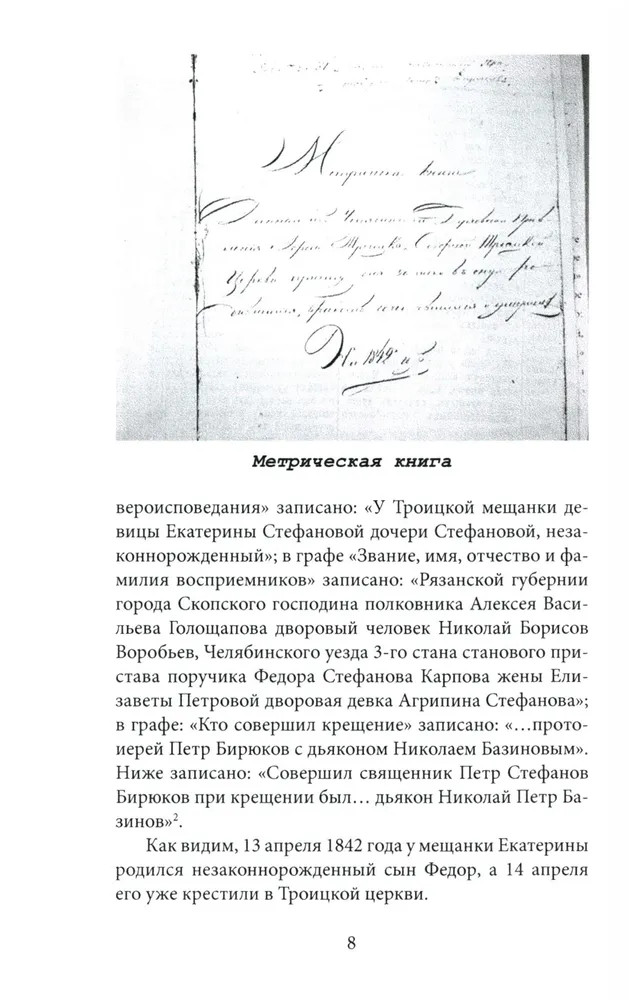 Метрическая книга
Троицкой
Церкви
1842
Метрическая книга
вероисповедания» записано: «У Троицкой мещанки де-
вицы Екатерины Стефановой дочери Стефановой, неза-
коннорожденный»; в графе «Звание, имя, отчество и фа-
милия восприемников» записано: «Рязанской губернии
города Скопского господина полковника Алексея Васи-
льева Голощапова дворовый человек Николай Борисов
Воробьев, Челябинского уезда 3-го стана станового при-
става поручика Федора Стефанова Карпова жены Ели-
заветы Петровой дворовая девка Агрипина Стефанова»;
в графе: «Кто совершил крещение» записано: «…прото-
иерей Петр Бирюков с дьяконом Николаем Базиновым».
Ниже записано: «Совершил священник Петр Стефанов
Бирюков при крещении был… дьякон Николай Петр Ба-
зинов»².
Как видим, 13 апреля 1842 года у мещанки Екатерины
родился незаконнорожденный сын Федор, а 14 апреля
его уже крестили в Троицкой церкви.
8